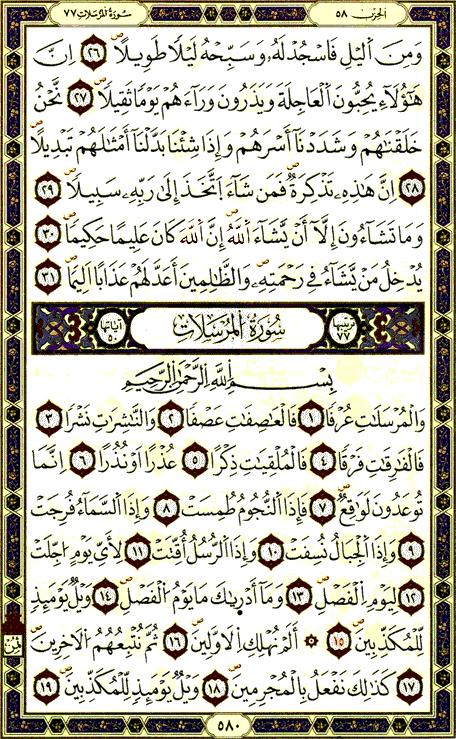 الحِزْب ٥٨
سُورَةُ المُرْسَلَات ٧٧
وَمِنَ اَ۬ليْلِ فَاسْجُدْ لَهُۥ وَسَبِّحْهُ لَيْلًا طَوِيلًا ٢٦ اِنَّ
هَٰٓؤُلَآءِ يُحِبُّونَ اَ۬لْعَاجِلَةَ وَيَذَرُونَ وَرَآءَهُمْ يَوْمًا ثَقِيلًا ٢٧ نَّحْنُ
خَلَقْنَٰهُمْ وَشَدَدْنَآ أَسْرَهُمْ وَإِذَا شِئْنَا بَدَّلْنَآ أَمْثَٰلَهُمْ تَبْدِيلًا
٢٨ اِنَّ هَٰذِهِۦ تَذْكِرَةٌ فَمَن شَآءَ اَ۪تَّخَذَ إِلَىٰ رَبِّهِۦ سَبِيلًا ٢٩
وَمَا تَشَآءُونَ إِلَّآ أَنْ يَّشَآءَ اَ۬للَّهُ إِنَّ اَ۬للَّهَ كَانَ عَلِيمًا حَكِيمًا ٣٠
يُدْخِلُ مَنْ يَّشَآءُ فِي رَحْمَتِهِۦ وَالظَّٰلِمِينَ أَعَدَّ لَهُمْ عَذَابًا اَلِيمًا ٣١
ترتيبها ٧٧
سُورَةُ المُرْسَلَاتِ
آياتها ٥٠
بِسْمِ اللَّهِ الرَّحْمَٰنِ الرَّحِيمِ
وَالْمُرْسَلَٰتِ عُرْفًا ١ فَالْعَٰصِفَٰتِ عَصْفًا ٢ وَالنَّٰشِرَٰتِ نَشْرًا ٣
فَالْفَٰرِقَٰتِ فَرْقًا ٤ فَالْمُلْقِيَٰتِ ذِكْرًا ٥ عُذْرًا اَوْ نُذُرًا ٦ اِنَّمَا
تُوعَدُونَ لَوَٰقِعٌ ٧ فَإِذَا اَ۬لنُّجُومُ طُمِسَتْ ٨ وَإِذَا اَ۬لسَّمَآءُ فُرِجَتْ
٩ وَإِذَا اَ۬لْجِبَالُ نُسِفَتْ ١٠ وَإِذَا اَ۬لرُّسُلُ أُقِّتَتْ ١١ لِأَيِّ يَوْمٍ ا۟جِّلَتْ
١٢ لِيَوْمِ اِ۬لْفَصْلِ ١٣ وَمَآ أَدْر۪ىٰكَ مَا يَوْمُ اُ۬لْفَصْلِ ١٤ وَيْلٌ يَوْمَئِذٍ
لِّلْمُكَذِّبِينَ ١٥ ۞ أَلَمْ نُهْلِكِ اِ۬لَاوَّلِينَ ١٦ ثُمَّ نُتْبِعُهُمُ اُ۬لَاخِرِينَ
١٧ كَذَٰلِكَ نَفْعَلُ بِالْمُجْرِمِينَ ١٨ وَيْلٌ يَوْمَئِذٍ لِّلْمُكَذِّبِينَ ١٩
ثمن
٥٨٠